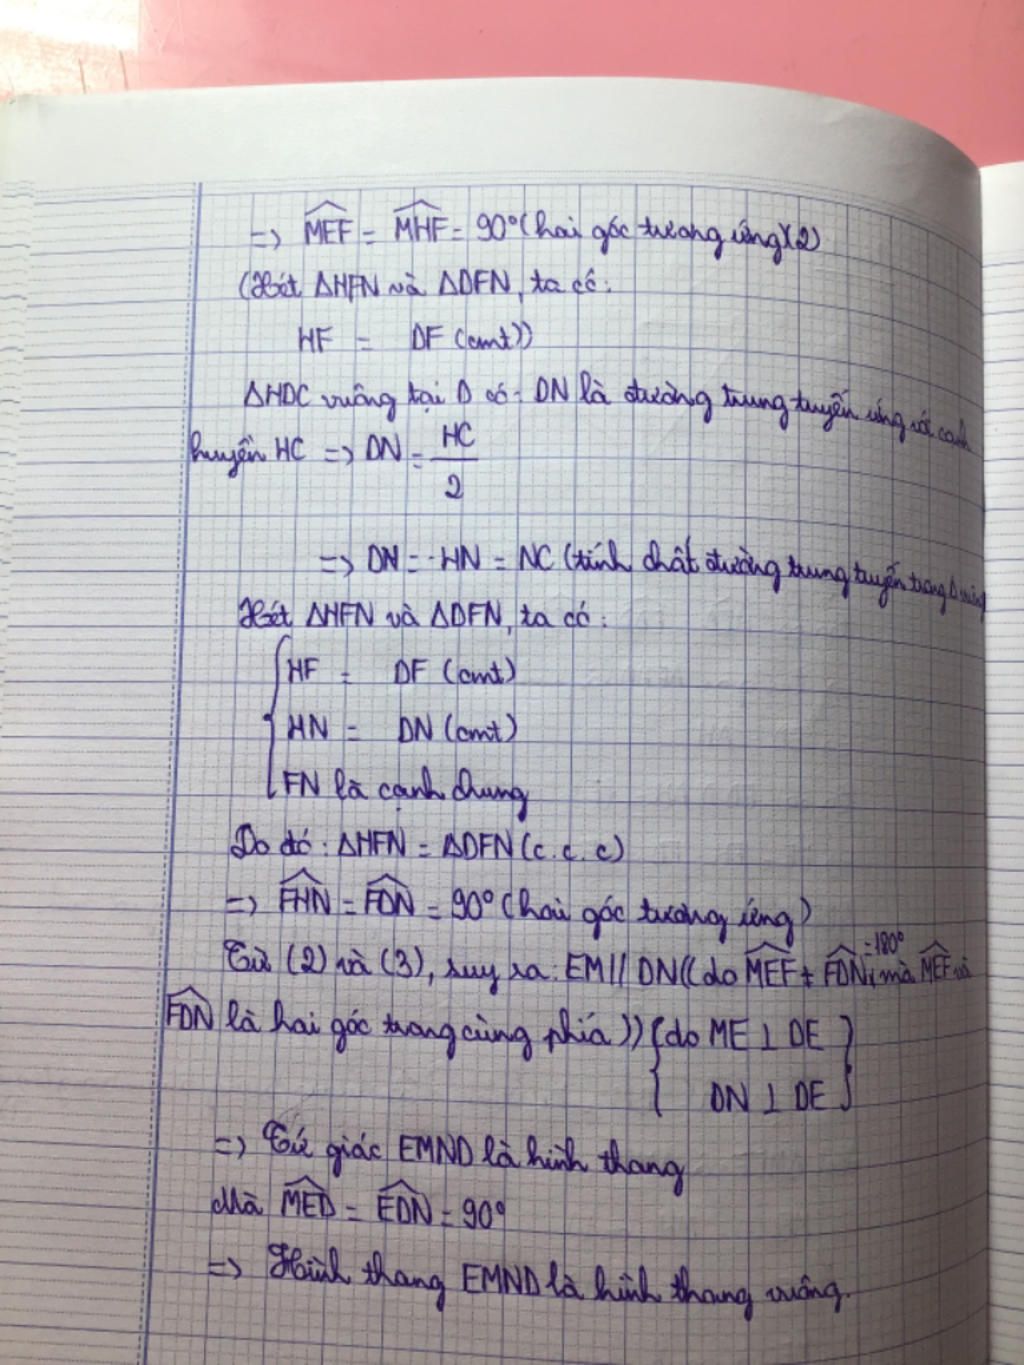 => MEF = MHF = 90° (hai góc tương ứng) (2)
(Xét ΔHFN và ΔDFN, ta có:
HF = DF (cmt))
ΔHDC vuông tại D có: DN là đường trung tuyến ứng với cạnh
huyền HC => DN = HC/2
=> DN = HN = NC (tính chất đường trung tuyến trong Δ vuông
Xét ΔHFN và ΔDFN, ta có:
HF = DF (cmt)
HN = DN (cmt)
FN là cạnh chung
Do đó: ΔHFN = ΔDFN (c.c.c)
=> FHN = FDN = 90° (hai góc tương ứng)
Từ (2) và (3), suy ra: EM // DN ((do MEF + FDN = 180°, mà MEF và
FDN là hai góc trong cùng phía)) {do ME ⊥ DE
DN ⊥ DE}
=> Tứ giác EMND là hình thang
Mà MED = EDN = 90°
=> Hình thang EMND là hình thang vuông.